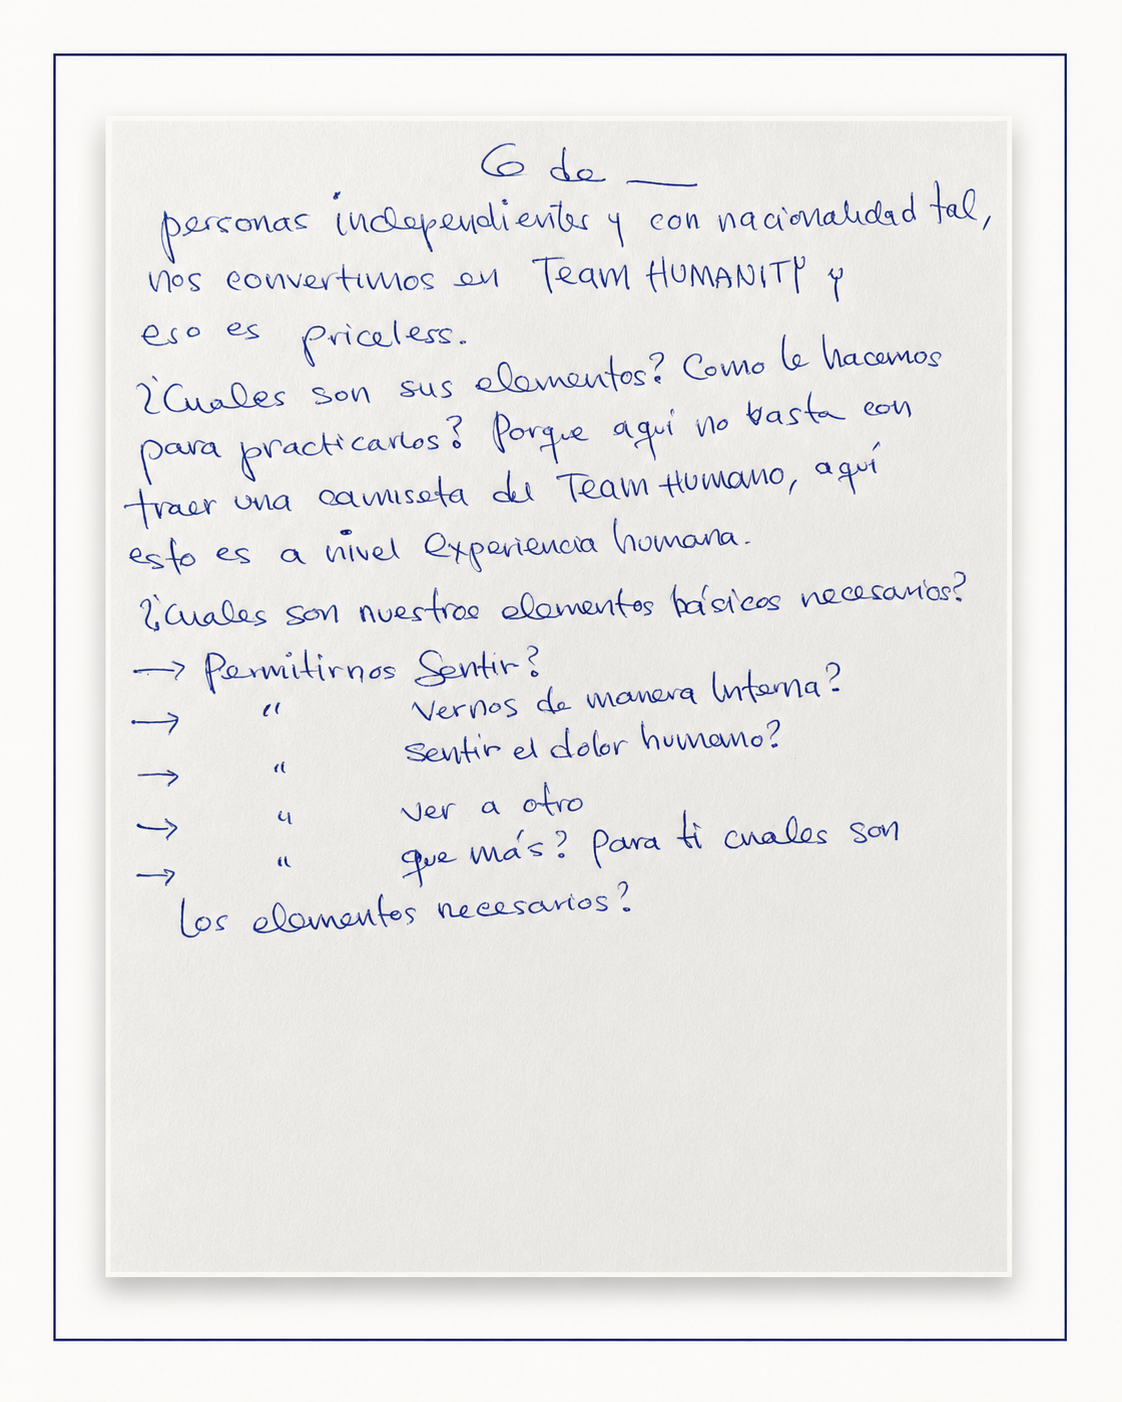 6 de __
personas independientes y con nacionalidad tal,
nos convertimos en Team HUMANITY y
eso es priceless.
¿Cuales son sus elementos? Como le hacemos
para practicarlos? Porque aquí no basta con
traer una camiseta del Team Humano, aquí
esto es a nivel experiencia humana.
¿Cuales son nuestros elementos básicos necesarios?
→ Permitirnos Sentir?
→ " Vernos de manera Interna?
→ " Sentir el dolor humano?
→ " ver a otro
→ " que más? Para ti cuales son
los elementos necesarios?